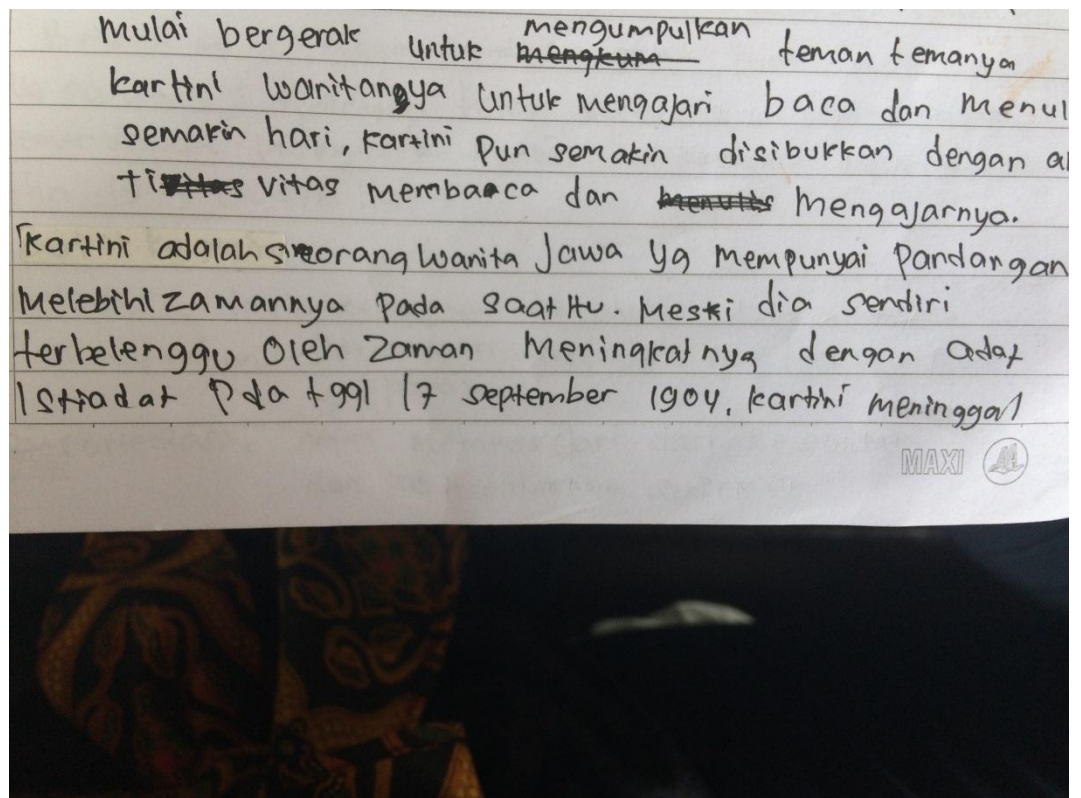 Mulai bergerak untuk mengumpulkan teman temanya
kartini wanitangya untuk mengajari baca dan menul
semakin hari, kartini pun semakin disibukkan dengan ak
ti vitas membaca dan mengajarnya.
Kartini adalah seorang wanita Jawa yg mempunyai Pandangan
Melebihi zamannya Pada saat itu. Meski dia sendiri
terbelenggu Oleh Zaman Meningkatnya dengan adat
Istiadat Pda tggl 17 september 1904, kartini meninggal
MAXI